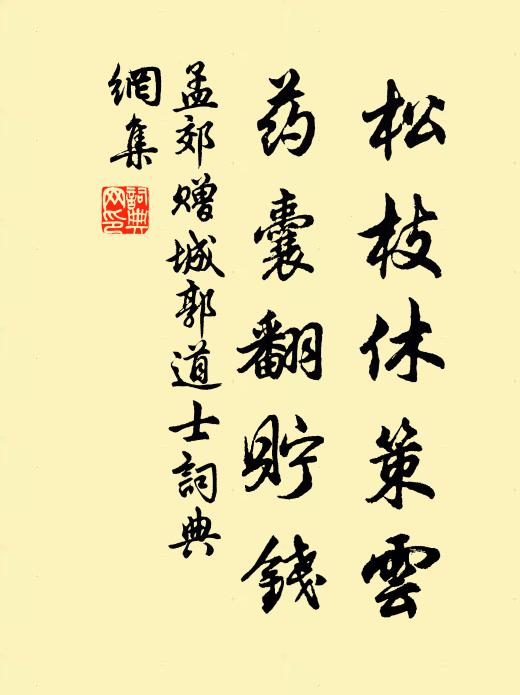 松枝休策雲
药囊翻貯錢
孟郊赠城郭道士詞典
網集
詞典
网印